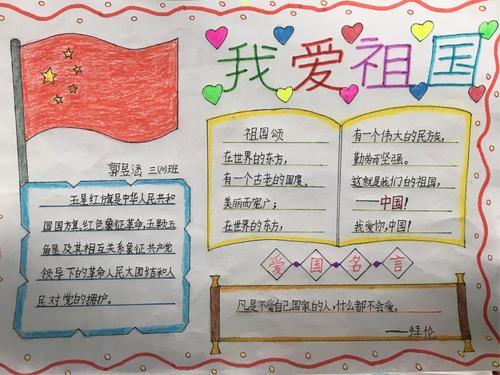 我爱祖国
郭昱涵 三(1)班
五星红旗是中华人民共和
国国旗。红色象征革命,五颗五
角星及其相互关系象征共产党
领导下的革命人民大团结和人
民对党的拥护。
祖国颂
在世界的东方,
有一个古老的国度,
美丽而宽广;
在世界的东方,
有一个伟大的民族,
勤劳而坚强。
这就是我们的祖国,
——中国!
我爱你,中国!
爱国名言
凡是不爱自己国家的人,什么都不会爱。
——拜伦